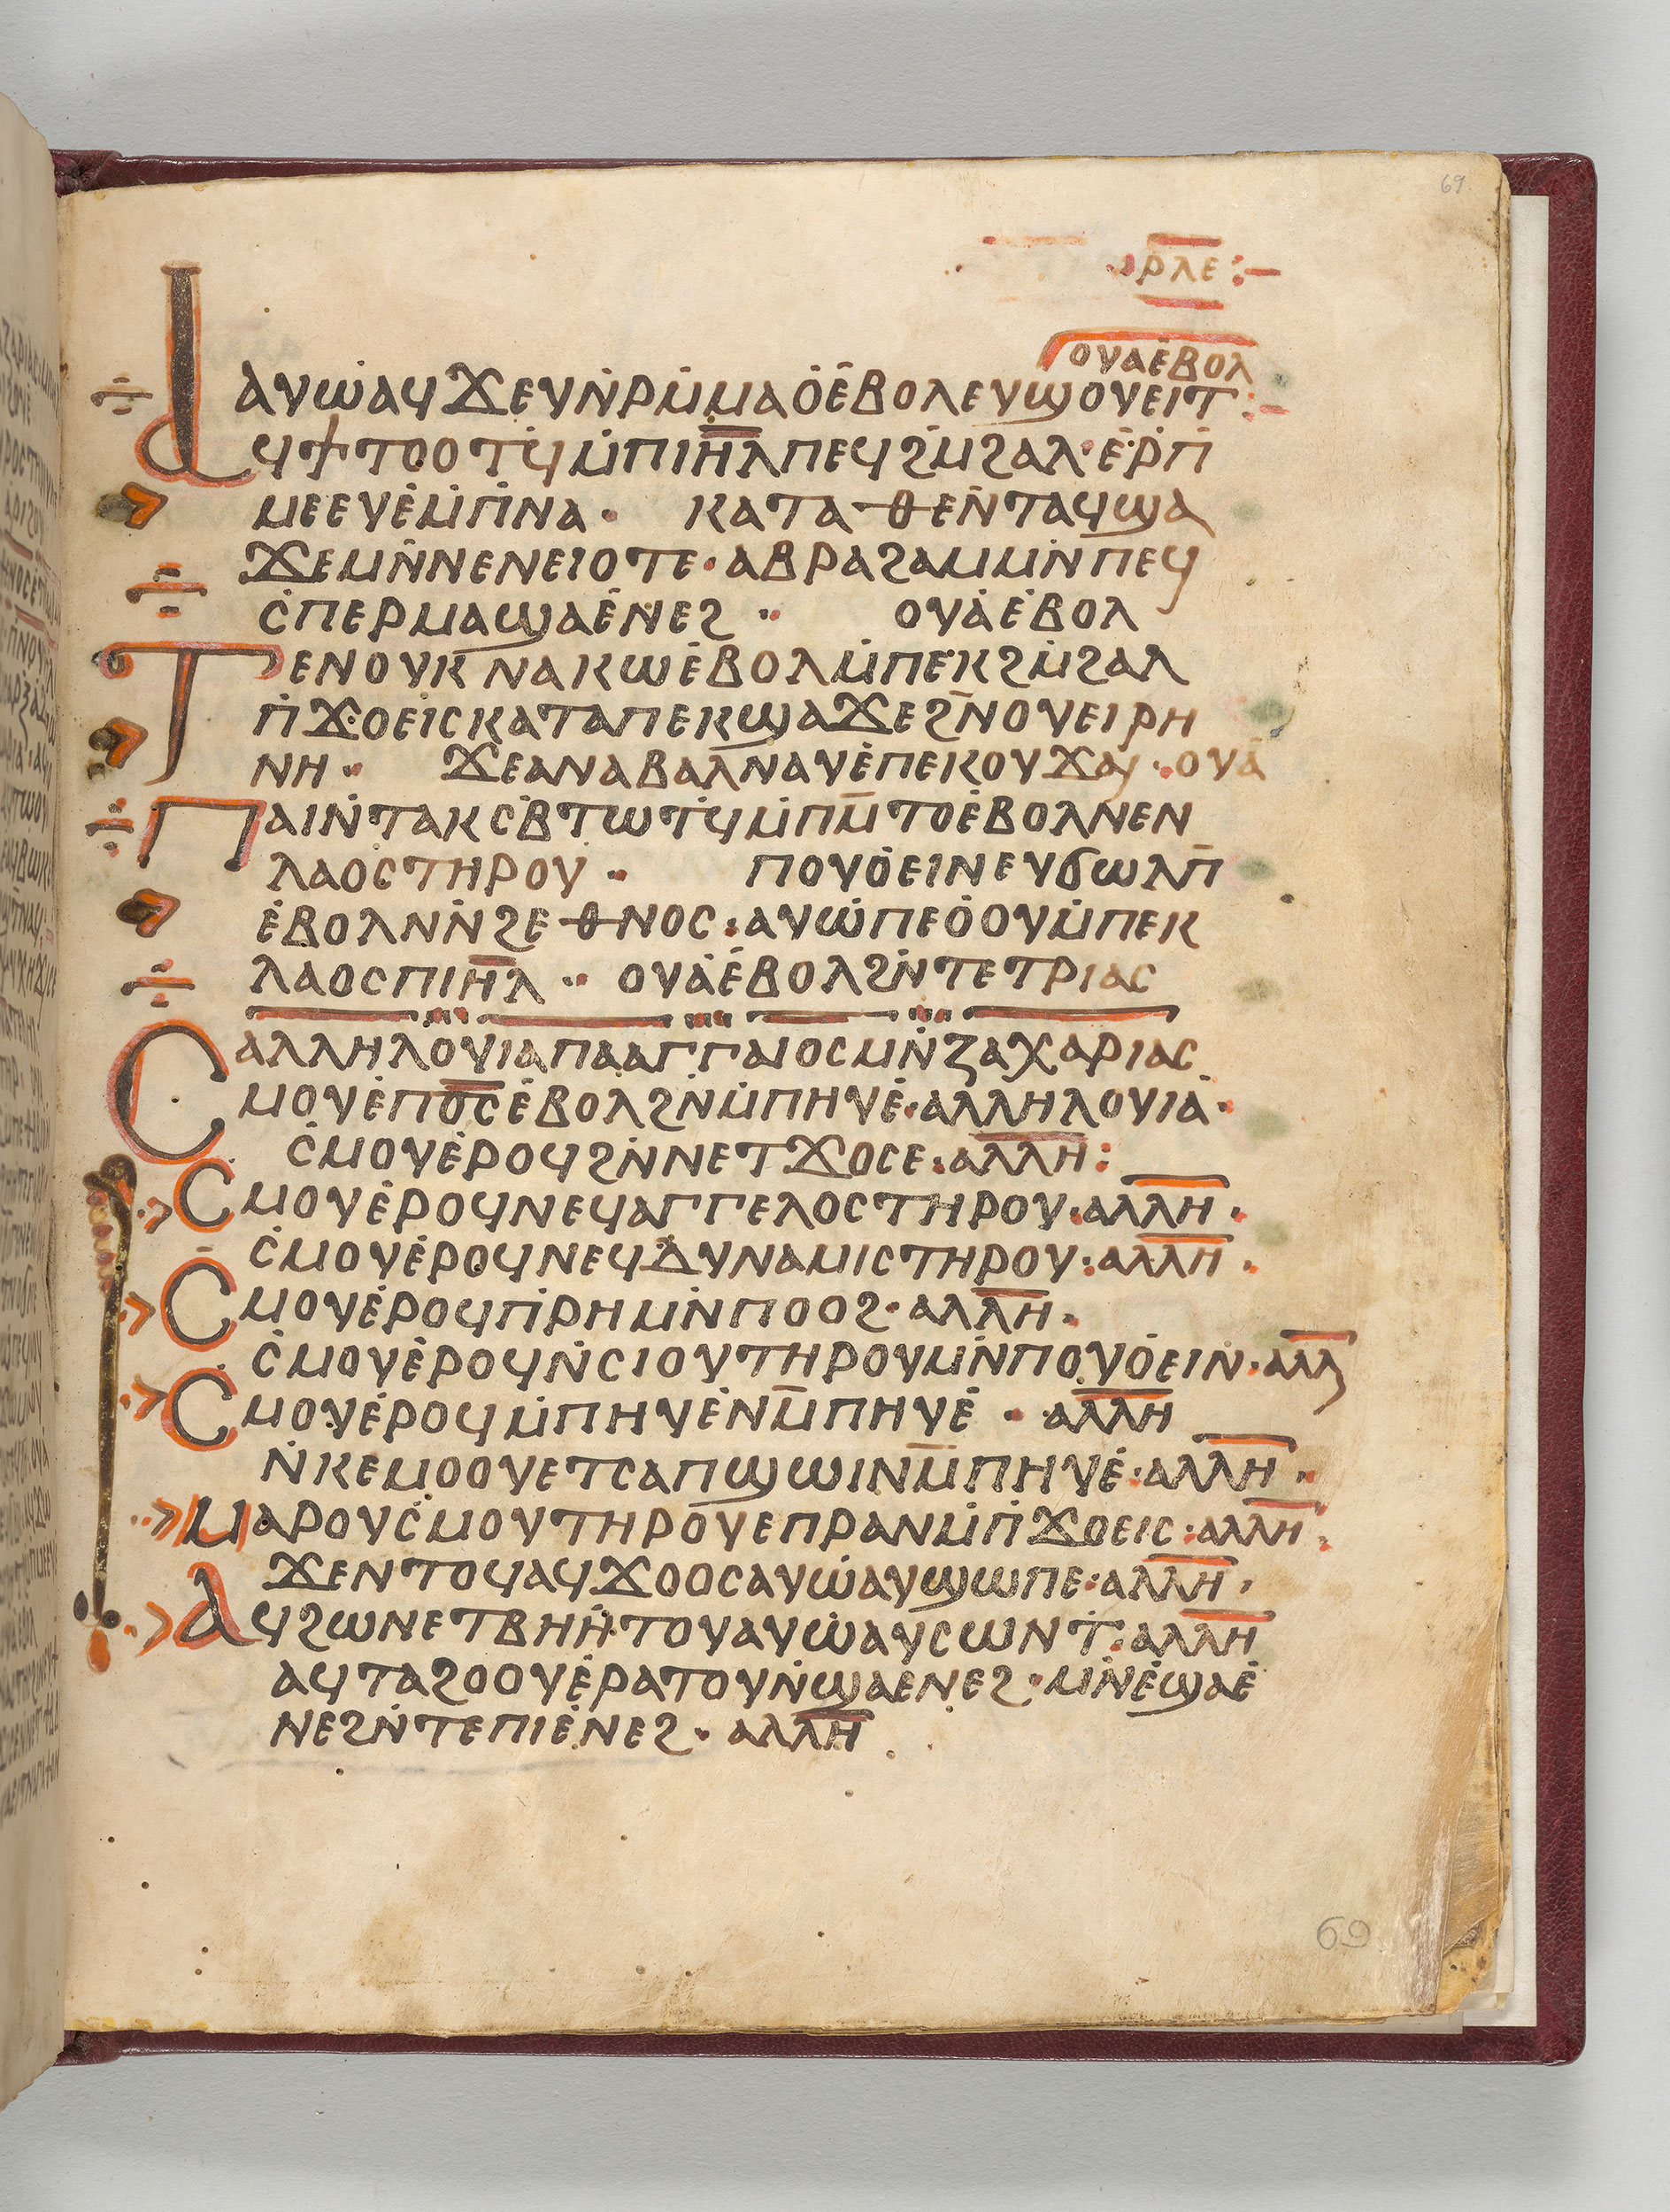 69
ⲣⲗⲉ
ⲟⲩⲁⲉ̇ⲃⲟⲗ
ⲁⲩⲱ̇ⲁϥϫⲉⲩⲛ̇ⲣⲙ̇ⲙⲁⲟ̇ⲉ̇ⲃⲟⲗⲉⲩϣⲟⲩⲉⲓⲧ:
ⲁϥϯⲧⲟⲟⲧϥ̇ⲙ̇ⲡⲓⲏ̅ⲗⲡⲉϥϩⲙ̇ϩⲁⲗ·ⲉ̇ⲣ̇ⲡ̇
ⲙⲉⲉⲩⲉ̇ⲙ̇ⲡ̇ⲛⲁ· ⲕⲁⲧⲁⲑⲉⲛ̇ⲧⲁϥϣⲁ
ϫⲉⲙⲛ̇ⲛⲉⲛⲉⲓⲟⲧⲉ·ⲁⲃⲣⲁϩⲁⲙⲙⲛ̇ⲡⲉϥ
ⲥ̇ⲡⲉⲣⲙⲁϣⲁⲉ̇ⲛⲉϩ·· ⲟⲩⲁ̇ⲉ̇ⲃⲟⲗ
ⲧⲉⲛⲟⲩⲕⲛⲁⲕⲱⲉ̇ⲃⲟⲗⲙ̇ⲡⲉⲕϩⲙ̇ϩⲁⲗ
ⲡ̇ϫⲟⲉⲓⲥⲕⲁⲧⲁⲡⲉⲕϣⲁϫⲉϩⲛ̅ⲟⲩⲉⲓⲣⲏ
ⲛⲏ·· ϫⲉⲁⲛⲁⲃⲁⲗⲛⲁⲩⲉ̇ⲡⲉⲕⲟⲩϫⲁⲓ·ⲟⲩⲁ̇
ⲡⲁⲓⲛ̇ⲧⲁⲕⲥ̇ⲃ̇ⲧⲱⲧϥ̇ⲙ̇ⲡⲙ̅ⲧⲟⲉ̇ⲃⲟⲗⲛⲉⲛ
ⲗⲁⲟⲥⲧⲏⲣⲟⲩ·· ⲡⲟⲩⲟ̇ⲉⲓⲛⲉⲩϭⲱⲗⲡ̅
ⲉ̇ⲃⲟⲗⲛⲛ̇ϩⲉⲑⲛⲟⲥ:ⲁⲩⲱ̇ⲡⲉⲟ̇ⲟⲩⲙ̇ⲡⲉⲕ
ⲗⲁⲟⲥⲡⲓⲏ̅ⲗ·· ⲟⲩⲁ̇ⲉ̇ⲃⲟⲗϩⲛ̇ⲧⲉⲧⲣⲓⲁⲥ
ⲁⲗⲗⲏⲗⲟⲩⲓⲁⲡⲁⲁⲅⲅⲁⲓⲟⲥⲙⲛ̇ⲍⲁⲭⲁⲣⲓⲁⲥ
ⲥⲙⲟⲩⲉ̇ⲡⲟ̅ⲥ̅ⲉ̇ⲃⲟⲗϩⲛ̇ⲙ̇ⲡⲏⲩⲉ̇·ⲁⲗⲗⲏⲗⲟⲩⲓⲁ·
ⲥ̇ⲙⲟⲩⲉ̇ⲣⲟϥϩⲛ̇ⲛⲉⲧϫⲟⲥⲉ:ⲁⲗⲗⲏ:
ⲥⲙⲟⲩⲉ̇ⲣⲟϥⲛⲉϥⲁⲅⲅⲉⲗⲟⲥⲧⲏⲣⲟⲩ·ⲁⲗⲗⲏ·
ⲥ̇ⲙⲟⲩⲉ̇ⲣⲟϥⲛⲉϥⲇⲩⲛⲁⲙⲓⲥⲧⲏⲣⲟⲩ:ⲁⲗⲗⲏ·
ⲥⲙⲟⲩⲉ̇ⲣⲟϥⲡ̇ⲣⲏⲙⲛ̇ⲡⲟⲟϩ·ⲁⲗⲗⲏ·
ⲥ̇ⲙⲟⲩⲉ̇ⲣⲟϥⲛ̇ⲥⲓⲟⲩⲧⲏⲣⲟⲩⲙⲛ̇ⲡⲟⲩⲟ̇ⲉⲓⲛ·ⲁⲗⲗ
ⲥⲙⲟⲩⲉ̇ⲣⲟϥⲙ̇ⲡⲏⲩⲉ̇ⲛⲙ̅ⲡⲏⲩⲉ̇·ⲁⲗⲗⲏ
ⲛ̇ⲕⲉⲙⲟⲟⲩⲉⲧⲥⲁⲡϣⲱⲓⲛⲙ̅ⲡⲏⲩⲉ̇·ⲁⲗⲗⲏ·
ⲙⲁⲣⲟⲩⲥ̇ⲙⲟⲩⲧⲏⲣⲟⲩⲉⲡⲣⲁⲛⲙ̇ⲡ̇ϫⲟⲉⲓⲥ:ⲁⲗⲗⲏ·
ϫⲉⲛⲧⲟϥⲁϥϫⲟⲟⲥⲁⲩⲱ̇ⲁⲩϣⲱⲡⲉ·ⲁⲗⲗⲏ·
ⲁϥϩⲱⲛⲉⲧⲃⲏⲏ̇ⲧⲟⲩⲁⲩⲱ̇ⲁⲩⲥⲱⲛⲧ̇:ⲁⲗⲗⲏ
ⲁϥⲧⲁϩⲟⲟⲩⲉ̇ⲣⲁⲧⲟⲩⲛ̇ϣⲁⲉⲛⲉϩ·ⲙⲛ̇ⲉ̇ϣⲁⲉ̇
ⲛⲉϩⲛ̇ⲧⲉⲡⲓⲉ̇ⲛⲉϩ·ⲁⲗⲗⲏ
69